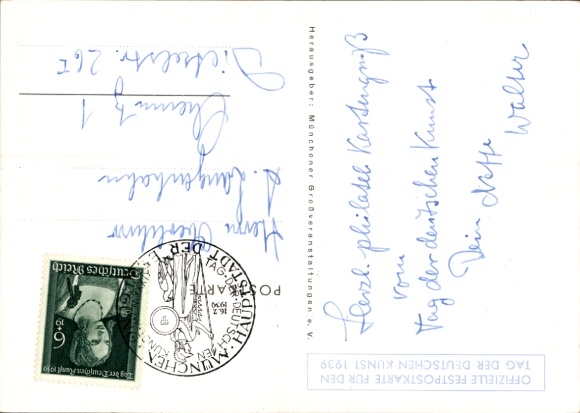 Herzl. philatel. Kartengruß
vom
Tag der deutschen Kunst
Dein Neffe Walter
OFFIZIELLE FESTPOSTKARTE FÜR DEN
TAG DER DEUTSCHEN KUNST 1939
Herausgeber: Münchener Großveranstaltungen e. V.
POSTKARTE
Herrn
A. Langenhahn
Chemnitz 1
26 I
Deutsches Reich
6+19
Tag der Deutschen Kunst 1939
MÜNCHEN · HAUPTSTADT DER
TAG DER DEUTSCHEN KUNST
16.7.
1939